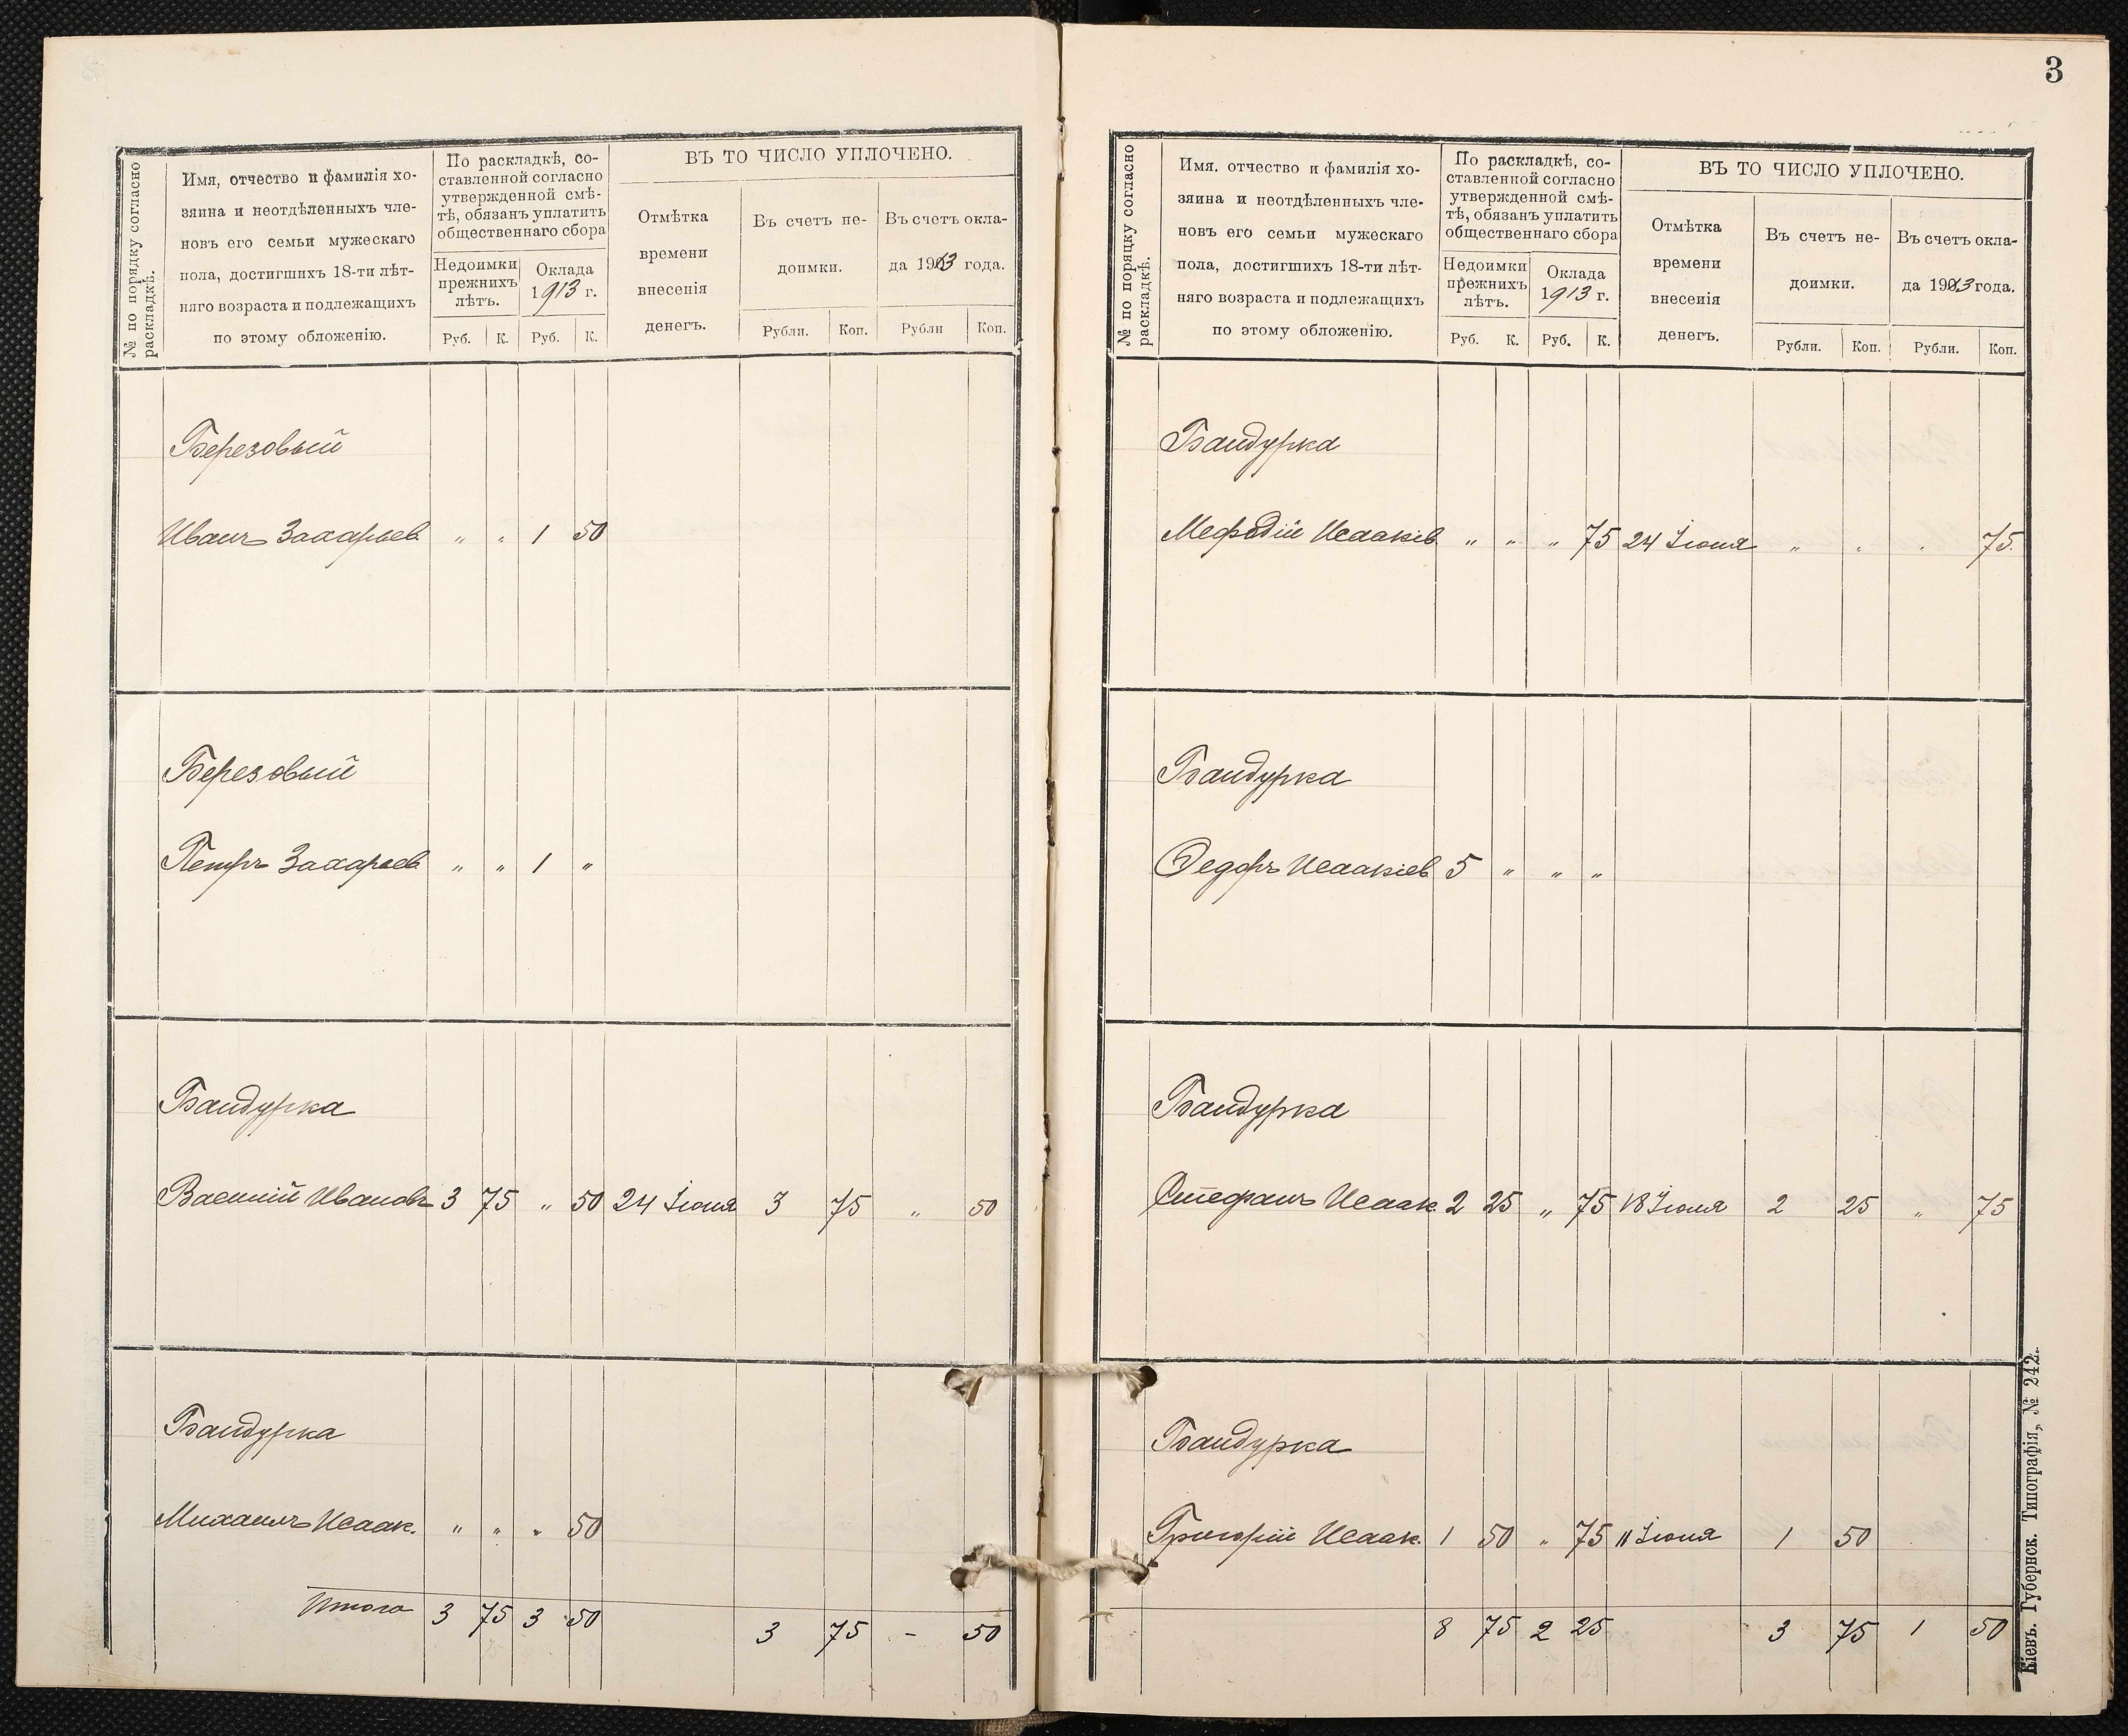 № по порядку согласно
раскладкѣ.
Имя, отчество и фамилія хо-
зяина и неотдѣленныхъ чле-
новъ его семьи мужескаго
пола, достигшихъ 18-ти лѣт-
няго возраста и подлежащихъ
по этому обложенію.
По раскладкѣ, со-
ставленной согласно
утвержденной смѣ-
тѣ, обязанъ уплатить
общественнаго сбора
Недоимки
прежнихъ
лѣтъ.
Оклада
1913 г.
Руб. К. Руб. К.
ВЪ ТО ЧИСЛО УПЛОЧЕНО.
Отмѣтка
времени
внесенія
денегъ.
Въ счетъ не-
доимки.
Въ счетъ окла-
да 1913 года.
Рубли. Коп. Рубли Коп.
Березовый
Иванъ Захарьев. " " 1 50
Березовый
Петръ Захарьев. " " 1 "
Бандурка
Василій Ивановъ 3 75 " 50 24 Іюня 3 75 " 50
Бандурка
Михаилъ Исаак. " " " 50
Итого 3 75 3 50 3 75 - 50
3
№ по порядку согласно
раскладкѣ.
Имя. отчество и фамилія хо-
зяина и неотдѣленныхъ чле-
новъ его семьи мужескаго
пола, достигшихъ 18-ти лѣт-
няго возраста и подлежащихъ
по этому обложенію.
По раскладкѣ, со-
ставленной согласно
утвержденной смѣ-
тѣ, обязанъ уплатить
общественнаго сбора
Недоимки
прежнихъ
лѣтъ.
Оклада
1913 г.
Руб. К. Руб. К.
ВЪ ТО ЧИСЛО УПЛОЧЕНО.
Отмѣтка
времени
внесенія
денегъ.
Въ счетъ не-
доимки.
Въ счетъ окла-
да 1913 года.
Рубли. Коп. Рубли. Коп.
Бандурка
Мефодій Исаакіев. " " " 75 24 Іюня " " " 75.
Бандурка
Федоръ Исаакіев. 5 " " "
Бандурка
Стефанъ Исаак. 2 25 " 75 18 Іюня 2 25 " 75
Бандурка
Григорій Исаак. 1 50 " 75 11 Іюня 1 50
8 75 2 25 3 75 1 50
Кіевъ. Губернск. Типографія, № 242.